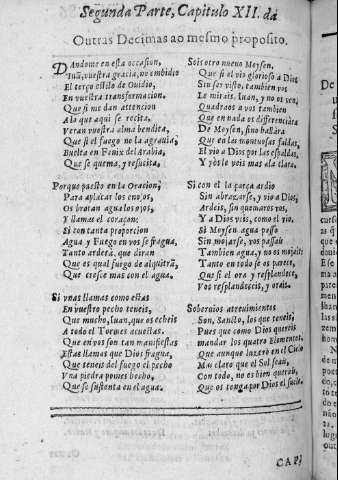 Segunda Parte, Capitulo XII. da
Outras Decimas ao mesmo proposito.
DAndome en esta occasion,
Iuã, vuestra gracia, no embidio
El terço estilo de Ouidio,
En vuestra transformacion.
Que si me dan attencion
A lo que aqui se recita,
Veran vuestra alma bendita,
Que si el fuego no la agrauia,
Buelta en Fenix del Arabia,
Que se quema, y resucita.
Porque puesto en la Oracion,
Para aplacar los enojos,
Os brotan agua los ojos,
Y llamas el coraçon:
Si con tanta proporcion
Agua y Fuego en vos se fragua,
Tanto arderà, que diran
Que es qual fuego de alquitrã,
Que cresce mas con el agua.
Si vnas llamas como estas
En vuestro pecho teneis,
Que mucho, Iuan, que os echeis
A todo el Torques acuestas.
Que en vos son tan manifiestas
Estas llamas que Dios fragua,
Que teneis del fuego el pecho
Vna piedra pomes hecho,
Que se sustenta en el agua.
Sois otro nueuo Moysen,
Que si el vio glorioso a Dios
Sin ser visto, tambien vos
Le mirais, Iuan, y no os ven,
Quadraos a vos tambien
Que en nada os differenciàra
De Moysen, sino hallàra
Que en las montuosas faldas,
El vio a Dios por las espaldas,
Y vos le veis mas ala clara.
Si con el la çarça ardio
Sin abrazarse, y vio a Dios,
Ardeis, sin quemaros vos,
Y a Dios veis, como el vio.
Si Moysen agua passo
Sin mojarse, vos passais
Tambien agua, y no os mojais
Tanto en todo se os parece,
Que si el ora y resplandece,
Vos resplandeceis, y orais.
Soberuios atreuimientos
Son, Sancto, los que teneis,
Pues que como Dios quereis
mandar los quatro Elementos.
Que aunque luzero en el Cielo
Mas claro que el Sol seais,
Con todo, no es bien querais,
Que os tengan por Dios el suelo.
CAP.